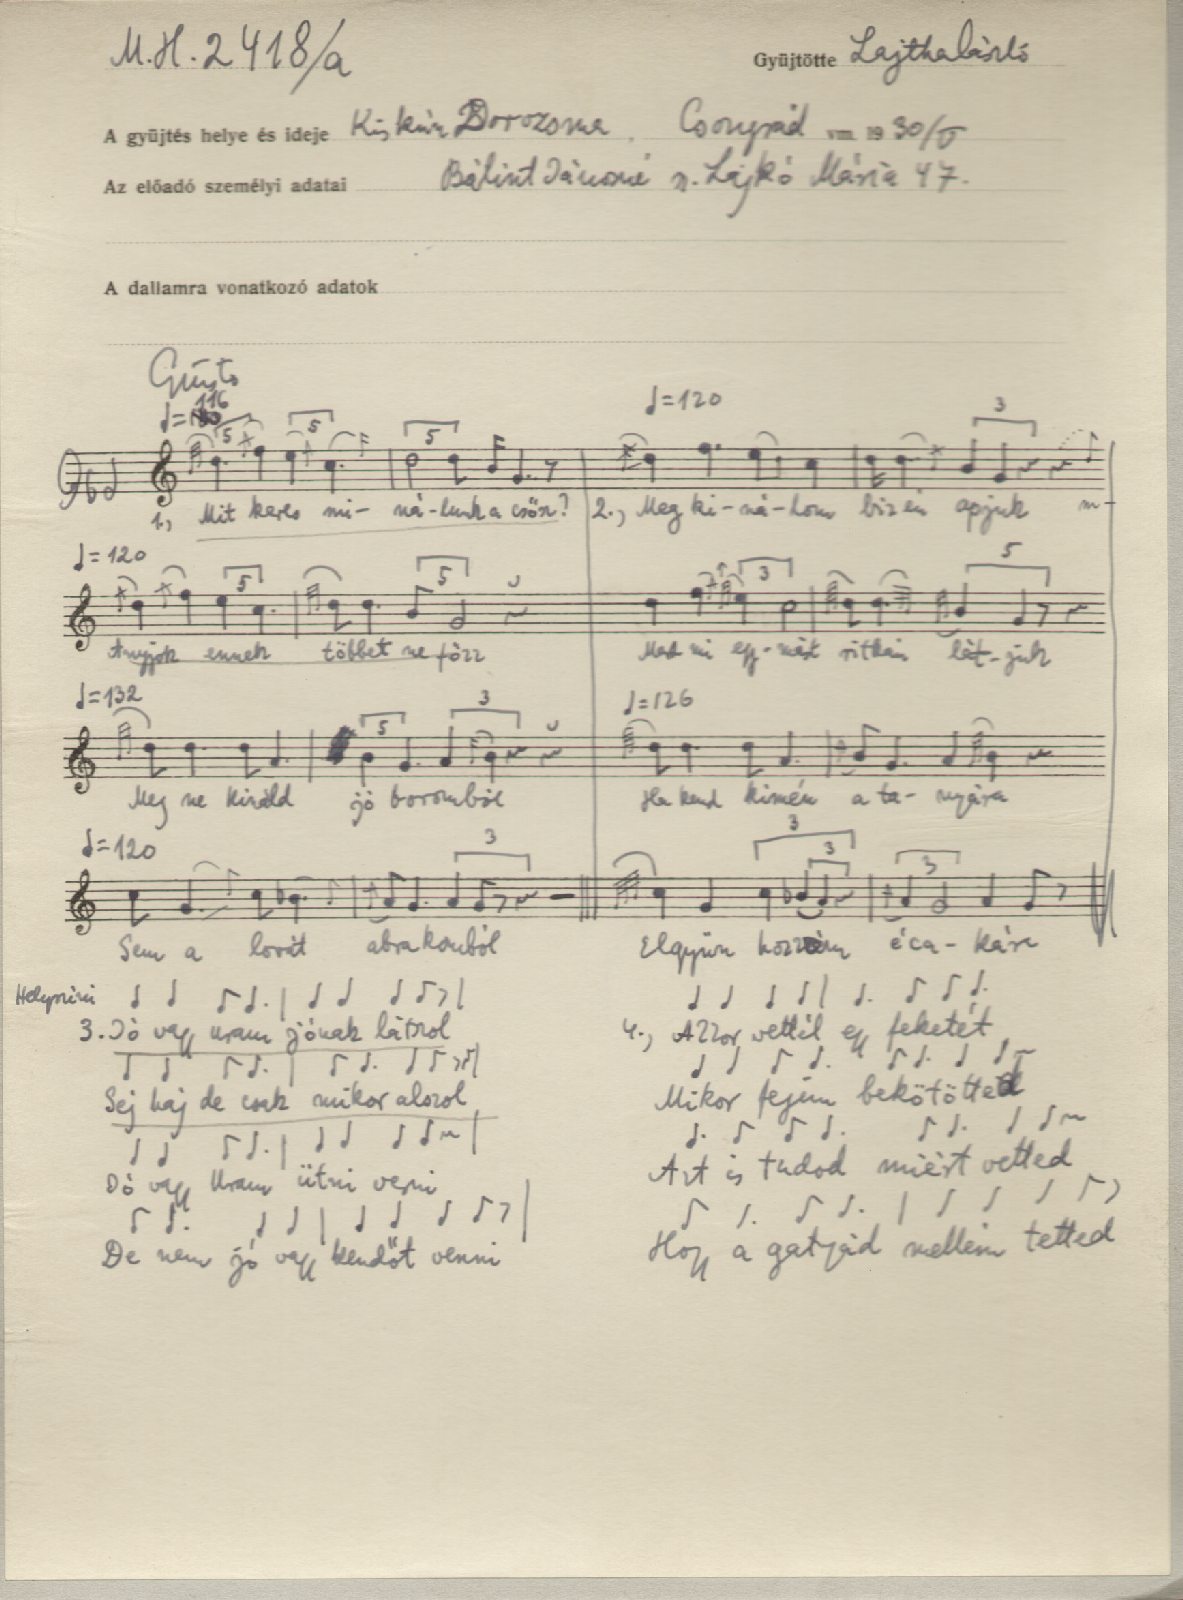 M.H. 2418/a
Gyüjtötte Lajtha László
A gyüjtés helye és ideje Kiskún Dorozsma, Csongrád vm. 1930/V
Az előadó személyi adatai Bálint Jánosné n. Lajkó Mária 47.
A dallamra vonatkozó adatok
Giusto
116
♩=120
5 5 5 3
1., Mit keres mi- ná-lunk a csősz? 2., Meg ki-ná-lom biz én apjuk
♩=120
5 5 3 5
Anyjok ennek többet ne főzz Mert mi egy-mást ritkán lát-juk
♩=132 ♩=126
5 3
Meg ne kináld jó boromból Ha kend kimén a ta- nyára
♩=120
3 3 3 3
Sem a lovát abrakomból Elgyün hozzám éca- kára
Helyszini
3. Jó vagy uram jónak látszol
Sej haj de csak mikor alszol
Jó vagy Uram ütni verni
De nem jó vagy kendőt venni
4., Azzor vettél egy feketét
Mikor fejem bekötötted
Azt is tudod miért vetted
Hogy a gatyád mellém tetted